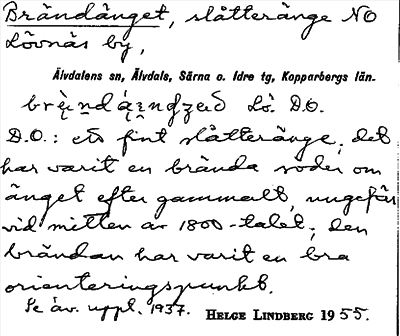 Brändänget, slåtteränge NO
Lövnäs by,
Älvdalens sn, Älvdals, Särna o. Idre tg, Kopparbergs län.
Lö. D.O.
D.O.: ett fint slåtteränge, det
har varit en brända söder om
änget efter gammalt, ungefär
vid mitten av 1800-talet; den
brändan har varit en bra
orienteringspunkt.
Se äv. uppt. 1937.
HELGE LINDBERG 1955.